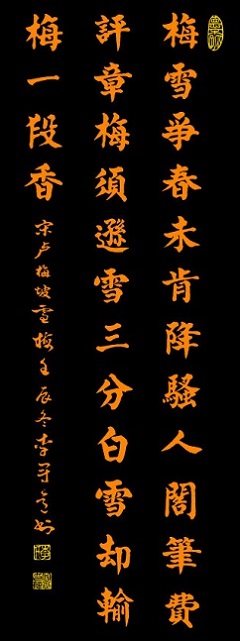 梅雪爭春未肯降騷人閣筆費
評章梅須遜雪三分白雪却輸
梅一段香
宋卢梅坡雪梅壬辰冬李